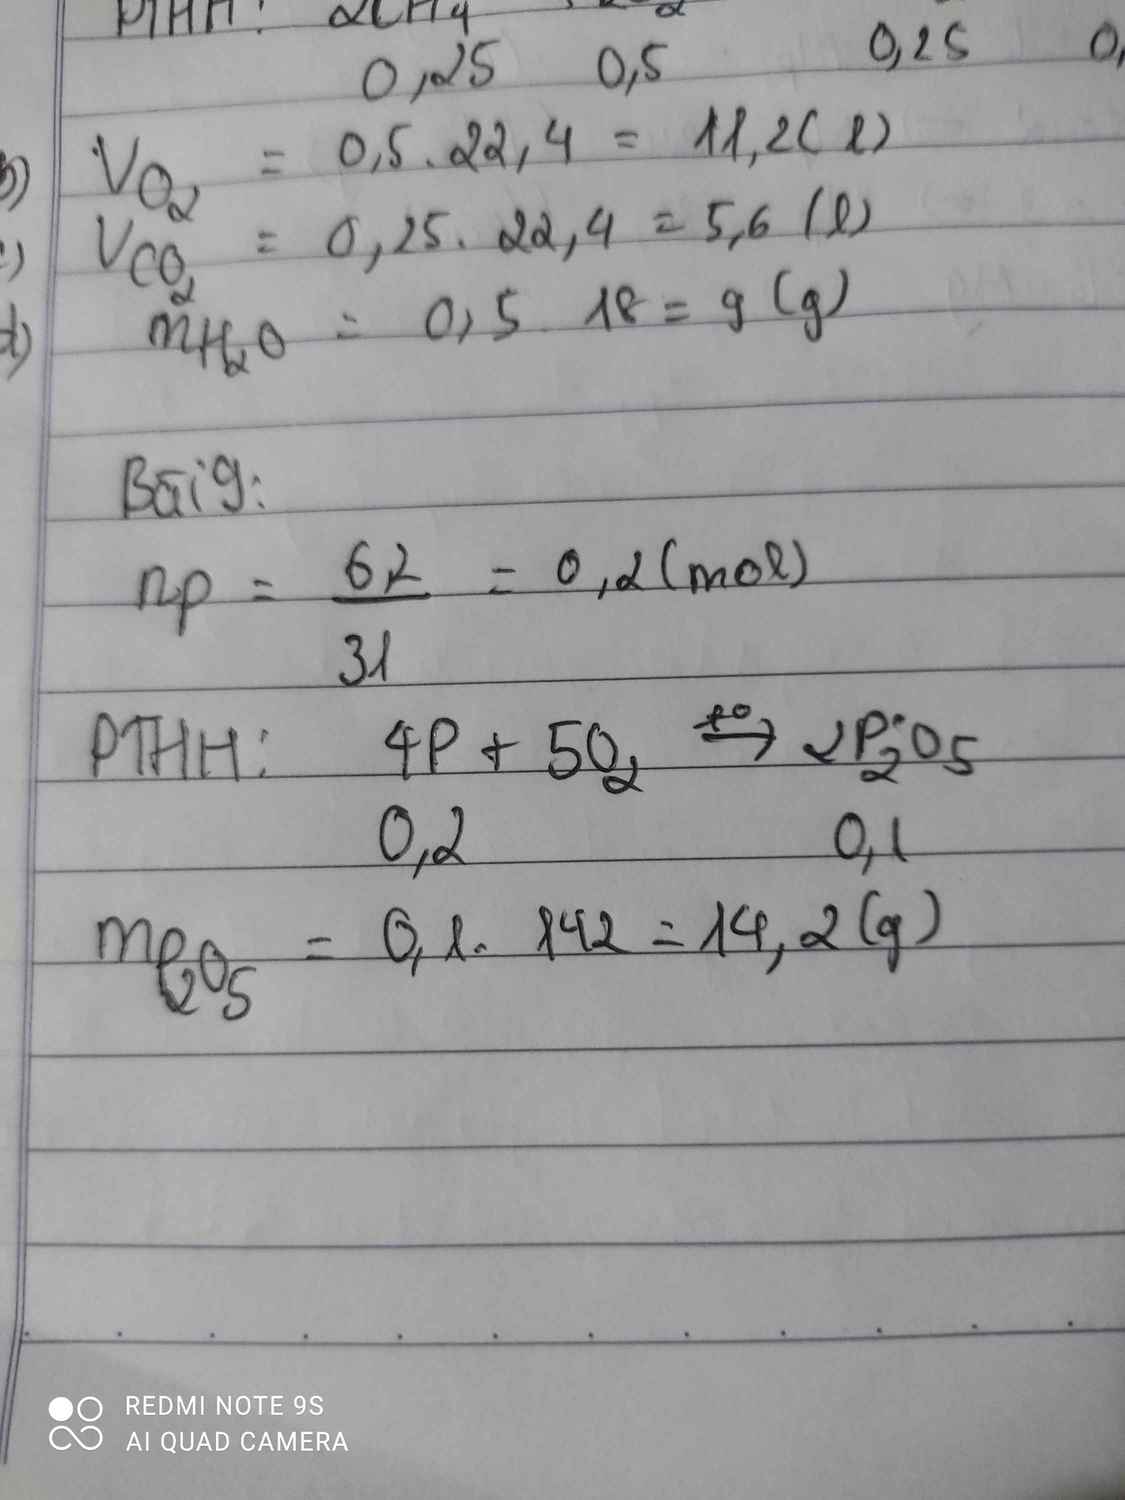 PTHH: 2CH4
0,25 0,5 0,25 0,
b) VO2 = 0,5 . 22,4 = 11,2 (l)
c) VCO2 = 0,25 . 22,4 = 5,6 (l)
d) mH2O = 0,5 . 18 = 9 (g)
Bài 9:
nP = 62/31 = 0,2 (mol)
PTHH: 4P + 5O2 to→ 2P2O5
0,2 0,1
mP2O5 = 0,1 . 142 = 14,2 (g)
REDMI NOTE 9S
AI QUAD CAMERA